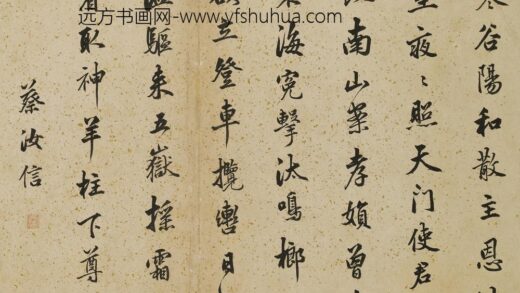 远方书画网-www.yfshuhua.com
谷陽和散主恩
夜〻照天门使君
南山案孝婧曾
海冤擊汰鳴榔
立登車攬轡日
驅来五嶽搖霜
取神羊柱下尊
蔡汝信